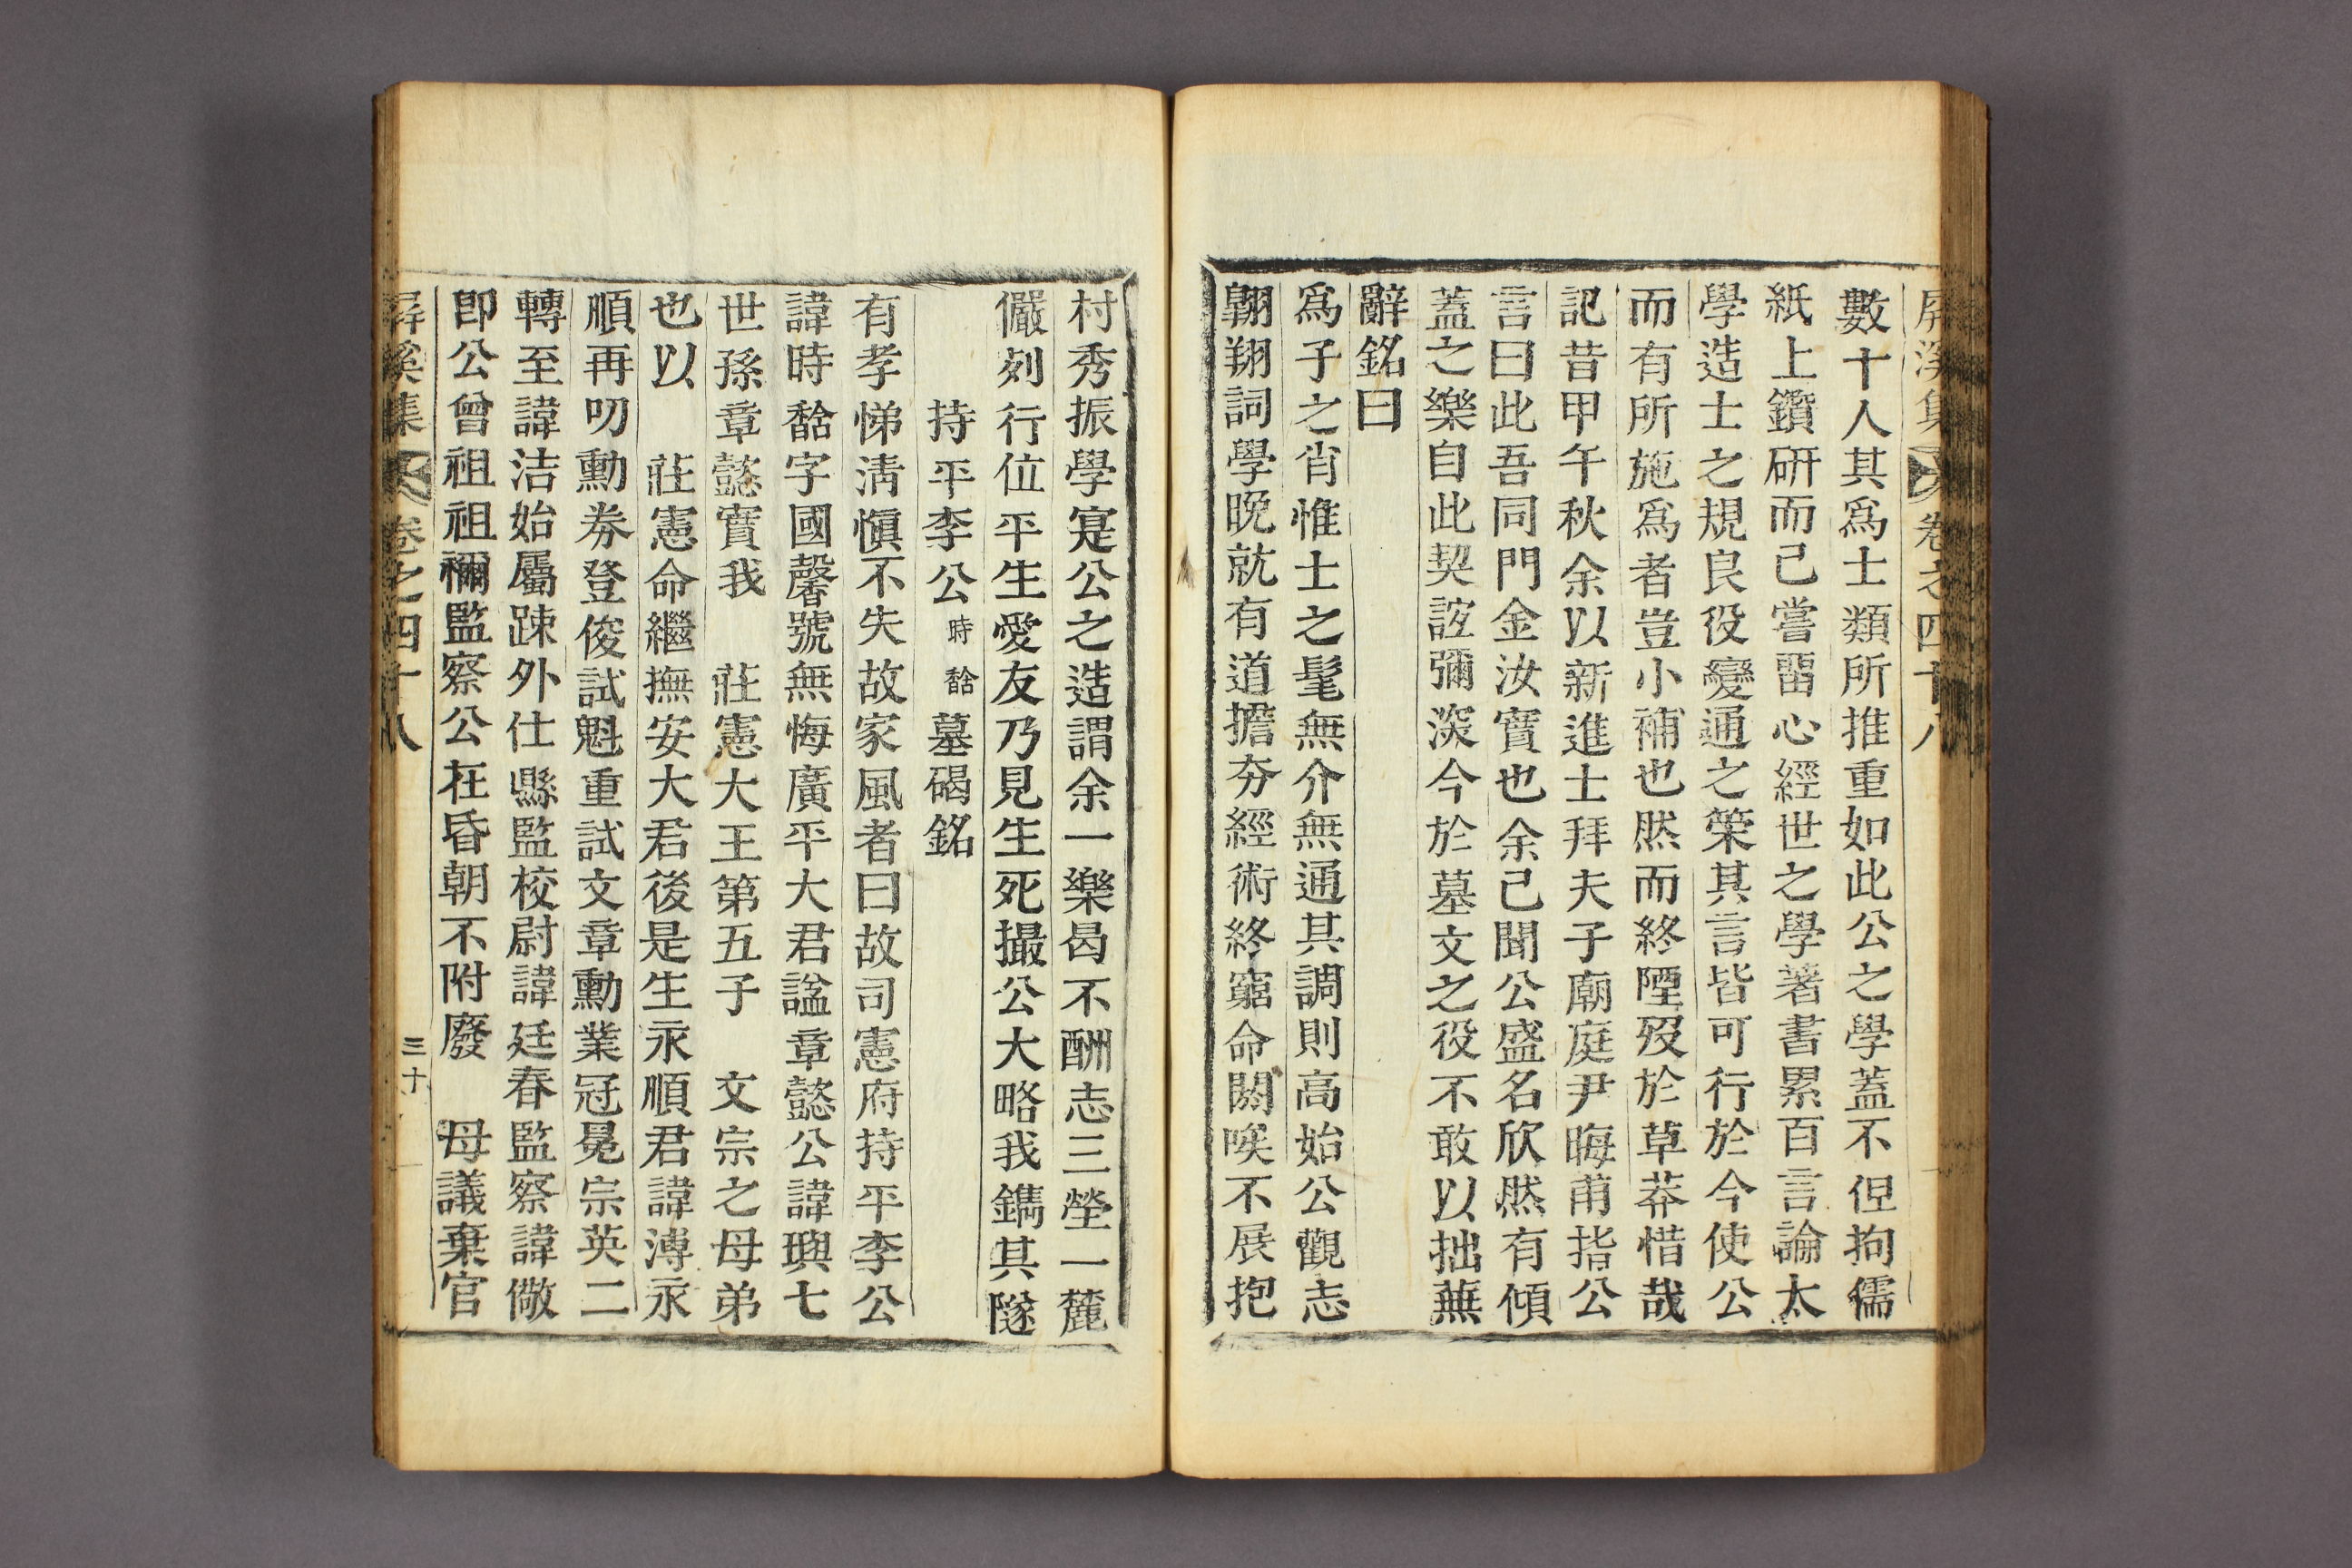 屛溪集 卷之四十八
數十人其爲士類所推重如此公之學蓋不但拘儒
紙上鑽硏而已嘗留心經世之學著書累百言論太
學造士之規良役變通之策其言皆可行於今使公
而有所施爲者豈小補也然而終陻歿於草莽惜哉
記昔甲午秋余以新進士拜夫子廟庭尹晦甫指公
言曰此吾同門金汝寶也余已聞公盛名欣然有傾
蓋之樂自此契誼彌深今於墓文之役不敢以拙蕪
辭銘曰
爲子之肖惟士之髦無介無通其調則高始公觀志
翺翔詞學晩就有道擔夯經術終窮命閼唉不展抱
村秀振學寔公之造謂余一樂曷不酬志三塋一麓
儼列行位平生愛友乃見生死撮公大略我鐫其隧
持平李公時馠墓碣銘
有孝悌淸愼不失故家風者曰故司憲府持平李公
諱時馠字國馨號無悔廣平大君諡章懿公諱璵七
世孫章懿實我 莊憲大王第五子 文宗之母弟
也以 莊憲命繼撫安大君後是生永順君諱溥永
順再叨勳券登俊試魁重試文章勳業冠冕宗英二
轉至諱洁始屬踈外仕縣監校尉諱廷春監察諱儆
卽公曾祖祖禰監察公在昏朝不附廢 母議棄官
屛溪集 卷之四十八 三十